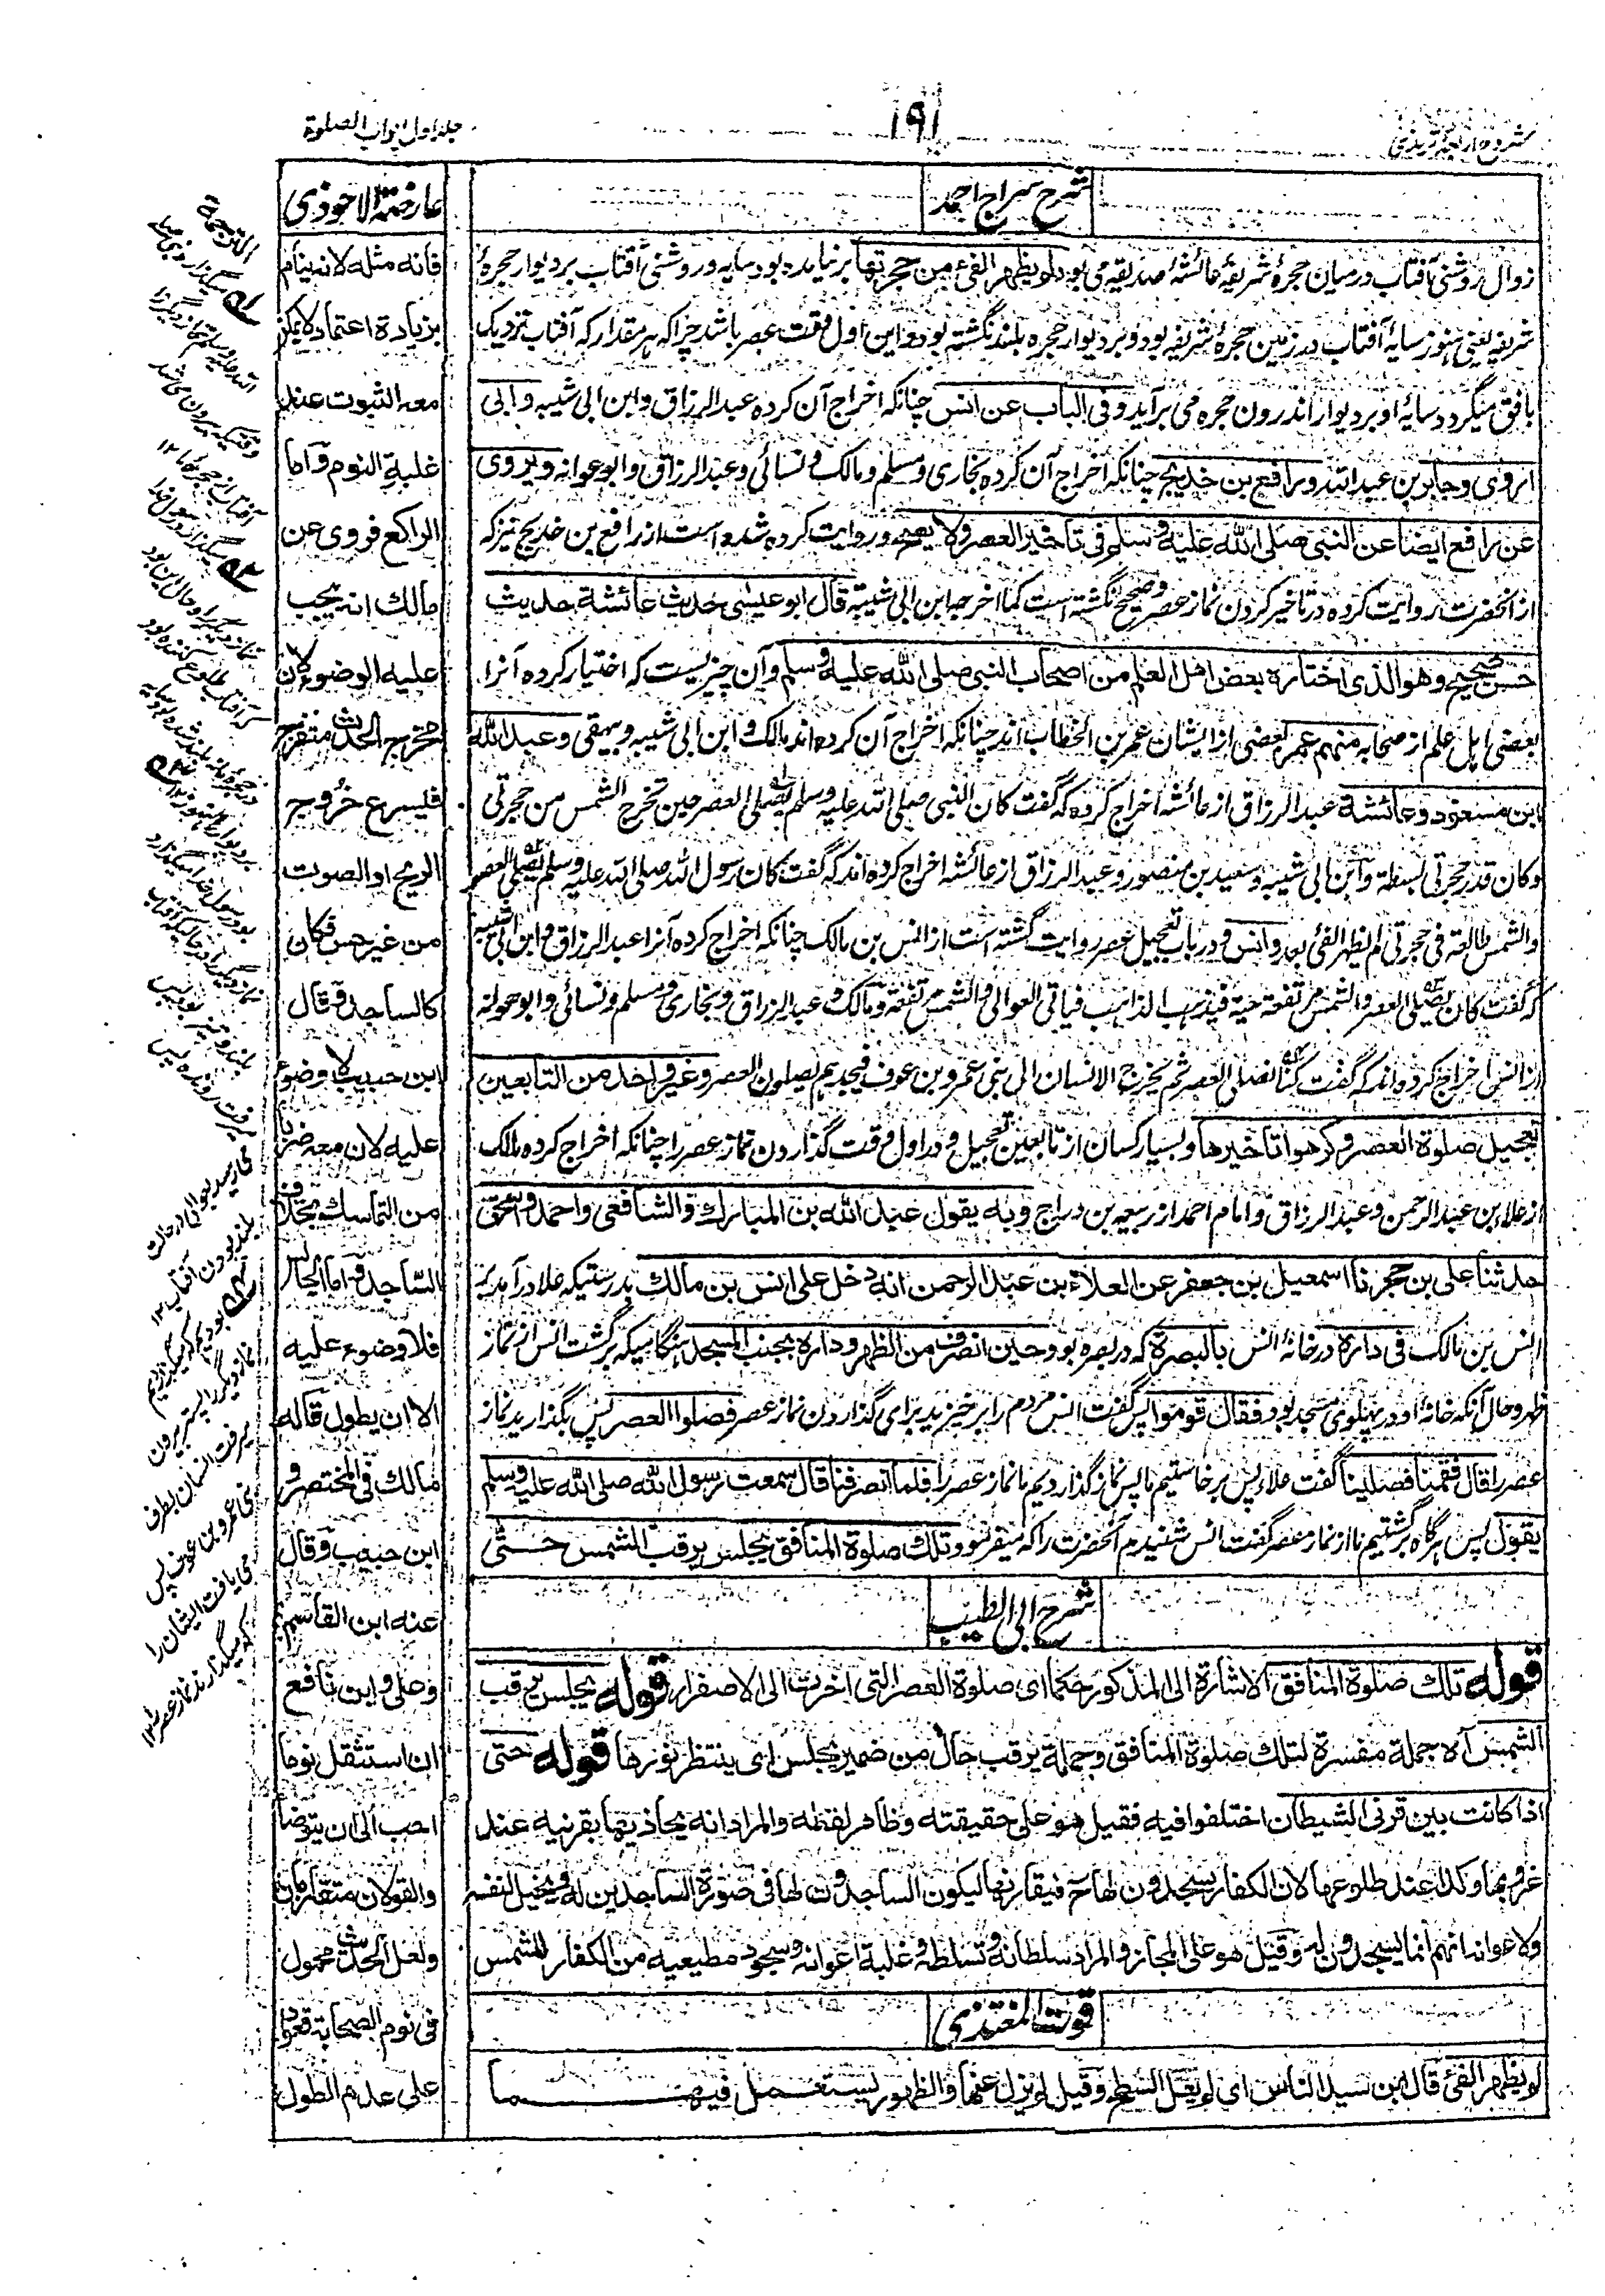 شروح اربعه ترمذی
۱۹۱
جلد اول ابواب الصلوة
شرح سراج احمد
زوال روشنی آفتاب درمیان حجرهٔ شریفهٔ عائشهٔ صدیقه می بود ولم یظهر الفیء من حجرتها برنیامده بود سایه و روشنی آفتاب بر دیوار حجرهٔ
شریفه یعنی هنوز سایهٔ آفتاب در زمین حجرهٔ شریفه بود و بر دیوار حجره بلند نگشته بود و این اول وقت عصر باشد چرا که هر مقدار که آفتاب نزدیک
بافق میگردد سایهٔ او بر دیوار اندرون حجره می برآید وفی الباب عن انس چنانکه اخراج آن کرده عبدالرزاق وابن ابی شیبه وابی
اروی وجابر بن عبدالله ورافع بن خدیج چنانکه اخراج آن کرده بخاری ومسلم ومالک ونسائی وعبدالرزاق وابوعوانه ویروی
عن رافع ایضا عن النبی صلی الله علیه وسلم فی تاخیر العصر ولا یصح وروایت کرده شده است از رافع بن خدیج نیز که
از آنحضرت روایت کرده در تاخیر کردن نماز عصر وصحیح نگشته است کما اخرجه ابن ابی شیبة قال ابو عیسی حدیث عائشة حدیث
حسن صحیح وهو الذی اختاره بعض اهل العلم من اصحاب النبی صلی الله علیه وسلم وآن چیزیست که اختیار کرده آنرا
بعضی اهل علم از صحابه منهم عمر بعضی از ایشان عمر بن الخطاب اند چنانکه اخراج آن کرده اند مالک وابن ابی شیبه وبیهقی وعبدالله
ابن مسعود وعائشة عبدالرزاق از عائشه اخراج کرده که گفت کان النبی صلی الله علیه وسلم یصلی العصر حین تخرج الشمس من حجرتی
وکان قدر حجرتی بسطة وابن ابی شیبه وسعید بن منصور وعبدالرزاق از عائشه اخراج کرده اند که گفت کان رسول الله صلی الله علیه وسلم یصلی العصر
والشمس طالعة فی حجرتی لم یظهر الفئ بعد وانس و در باب تعجیل عصر روایت گشته است از انس بن مالک چنانکه اخراج کرده آنرا عبدالرزاق وابن ابی شیبة
که گفت کان یصلی العصر والشمس مرتفعة حیة فیذهب الذاهب فیاتی العوالی والشمس مرتفعة ومالک وعبدالرزاق وبخاری ومسلم ونسائی وابوعوانه
از انس اخراج کرده اند که گفت کنا نصلی العصر ثم یخرج الانسان الی بنی عمرو بن عوف فیجدهم یصلون العصر وغیر واحد من التابعین
تعجیل صلوة العصر وکرهوا تاخیرها وبسیار کسان از تابعین تعجیل و در اول وقت گذاردن نماز عصر را چنانکه اخراج کرده مالک
از علاء بن عبدالرحمن وعبدالرزاق وامام احمد از ربیعه بن دراج وبه یقول عبدالله بن المبارک والشافعی واحمد واسحق
حدثنا علی بن حجر نا اسمعیل بن جعفر عن العلاء بن عبدالرحمن انه دخل علی انس بن مالک بدرستیکه علا درآمد بر
انس بن مالک فی داره در خانهٔ انس بالبصرة که در بصره بود وحین انصرف من الظهر وداره بجنب المسجد هنگامیکه برگشت انس از نماز
ظهر وحال آنکه خانهٔ او در پهلوی مسجد بود فقال قوموا پس گفت انس مردم را برخیزید برای گذاردن نماز عصر فصلوا العصر پس بگذارید نماز
عصر را قال فقمنا فصلینا گفت علاء پس برخاستیم ما پس نماز گذاردیم ما نماز عصر را فلما انصرفنا قال سمعت رسول الله صلی الله علیه وسلم
یقول پس هرگاه برگشتیم ما از نماز عصر گفت انس شنیدم آنحضرت را که میفرمود تلک صلوة المنافق یجلس یرقب الشمس حتی
شرح ابی الطیب
قوله تلک صلوة المنافق الاشارة الی المذکور حکما ای صلوة العصر التی اخرت الی الاصفرار قوله یجلس یرقب
الشمس آه جملة مفسرة لتلک صلوة المنافق وجملة یرقب حال من ضمیر یجلس ای ینتظر نورها قوله حتی
اذا کانت بین قرنی الشیطان اختلفوا فیه فقیل هو علی حقیقته وظاهر لفظه والمراد انه یحاذیها بقرنیه عند
غروبها وکذا عند طلوعها لان الکفار یسجدون لها ح فیقارنها لیکون الساجدون لها فی صورة الساجدین له ویخیل لنفسه
ولاعوانه انهم انما یسجدون له وقیل هو علی المجاز والمراد سلطانه وتسلطه وغلبة اعوانه وسجود مطیعیه من الکفار للشمس
قوت المغتذی
لم یظهر الفئ قال ابن سید الناس ای لم یعل السطح وقیل لم یزل عنها والظهور یستعمل فیهما
عارضة الاحوذی
فانه مثله لانه ینام
بزیادة اعتماد لا یمکن
معه الثبوت عند
غلبة النوم واما
الراکع فروی عن
مالک انه یجب
علیه الوضوء لان
مخرج الحدث منفرج
فیسرع خروج
الریح او الصوت
من غیر حس فکان
کالساجد وقال
ابن حبیب لا وضوء
علیه لان معه ضربا
من التماسک بخلاف
الساجد واما الجالس
فلا وضوء علیه
الا ان یطول قاله
مالک فی المختصر و
ابن حبیب وقال
عنه ابن القاسم
وعلی وابن نافع
ان استثقل نوما
احب الی ان یتوضأ
والقولان متقاربان
ولعل الحدیث محمول
فی نوم الصحابة قعودا
علی عدم الطول
الترجمة
میگذارد نبی صلی
الله علیه وسلم نماز دیگر را
وقتیکه بیرون می شد
آفتاب از حجرهٔ ما ۱۲
میگذارد رسول خدا
نماز دیگر را وحال این بود
که آفتاب طلوع کننده بود
بود رسول خدا میگذارد
نماز دیگر را در حالیکه آفتاب
بلند و تیز بود پس
میرفت رونده پس
می رسید بعوالی در حالت
بلند بودن آفتاب ۱۲
بودیم ما که میگذاردیم
نماز دیگر را پستر بیرون
میرفت انسان بطرف
بنی عمرو بن عوف پس
می یافت ایشان را
که میگذارند نماز عصر ۱۲